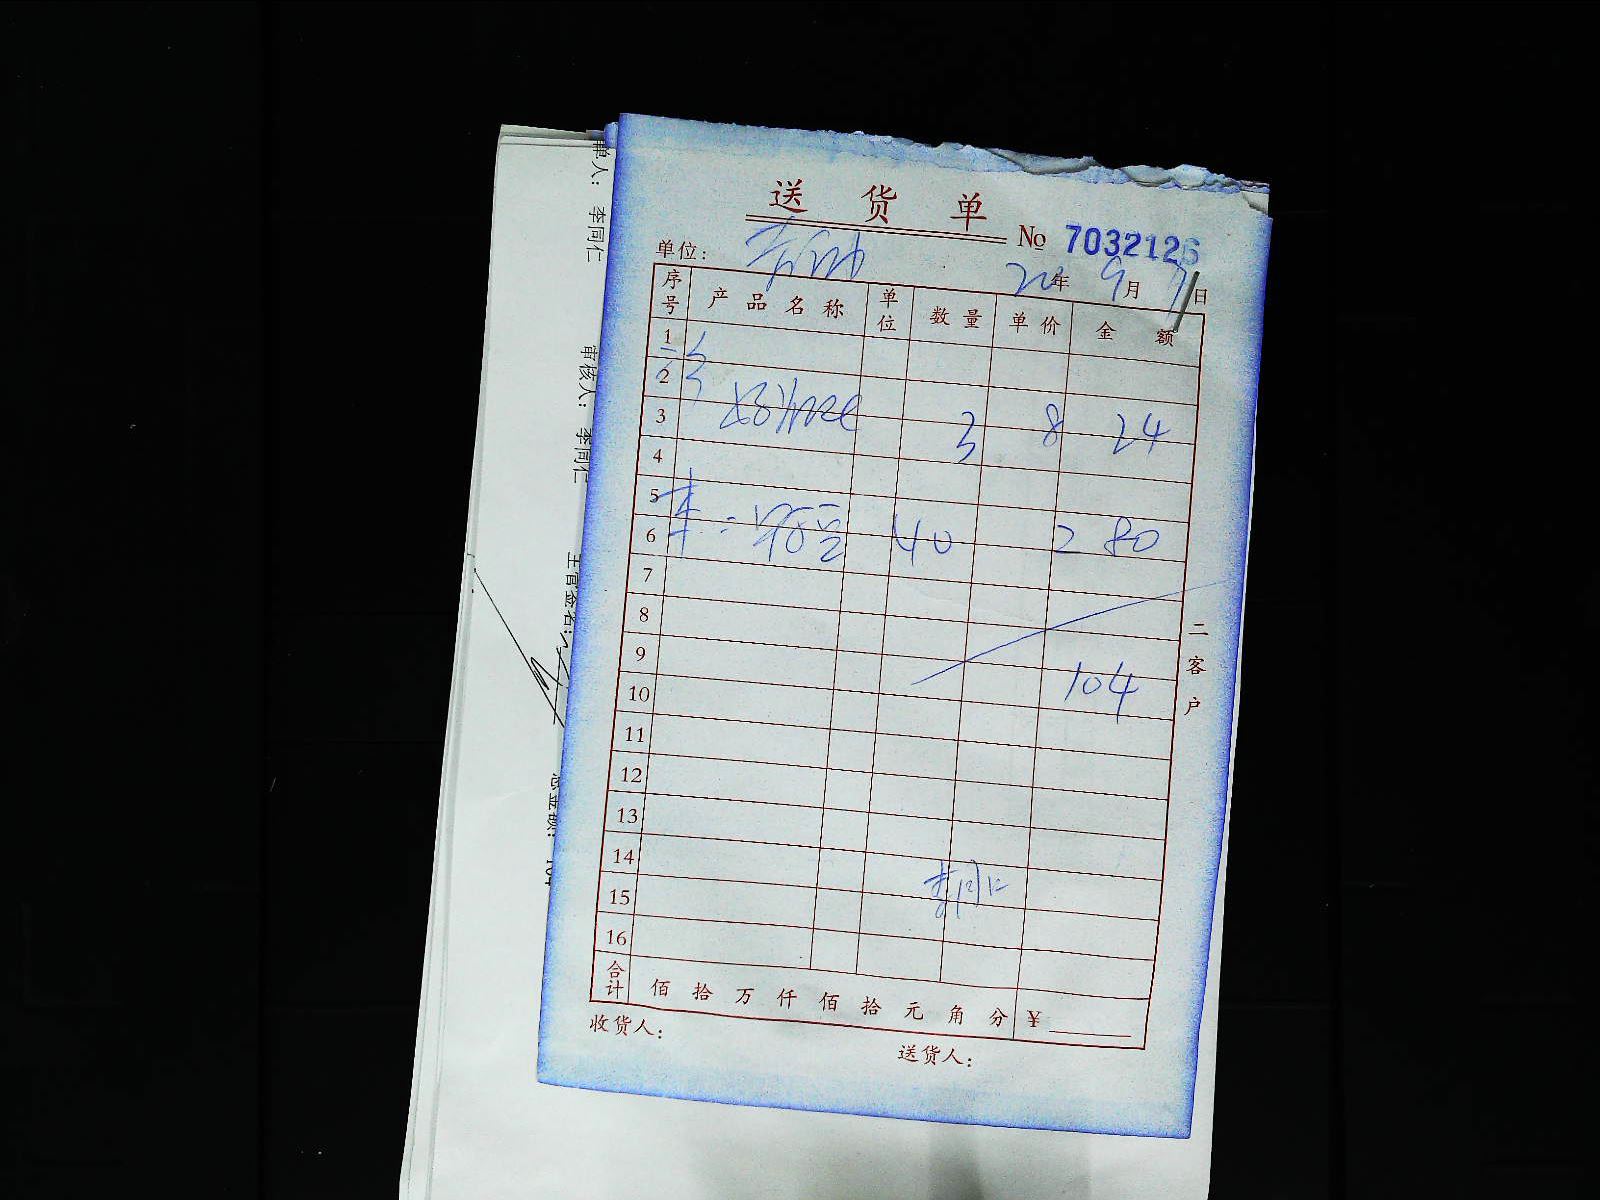 送货单
№ 7032126
单位:
20年 9月 7日
序号 产品名称 单位 数量 单价 金额
1
2
3 3 8 24
4
5
6 40 2 80
7
8
9
10 104
11
12
13
14
15 李同仁
16
合计 佰拾万仟佰拾元角分 ¥
收货人:
送货人:
二客户
单人: 李同仁
审核人: 李同仁
主管签名:
总金额: 104